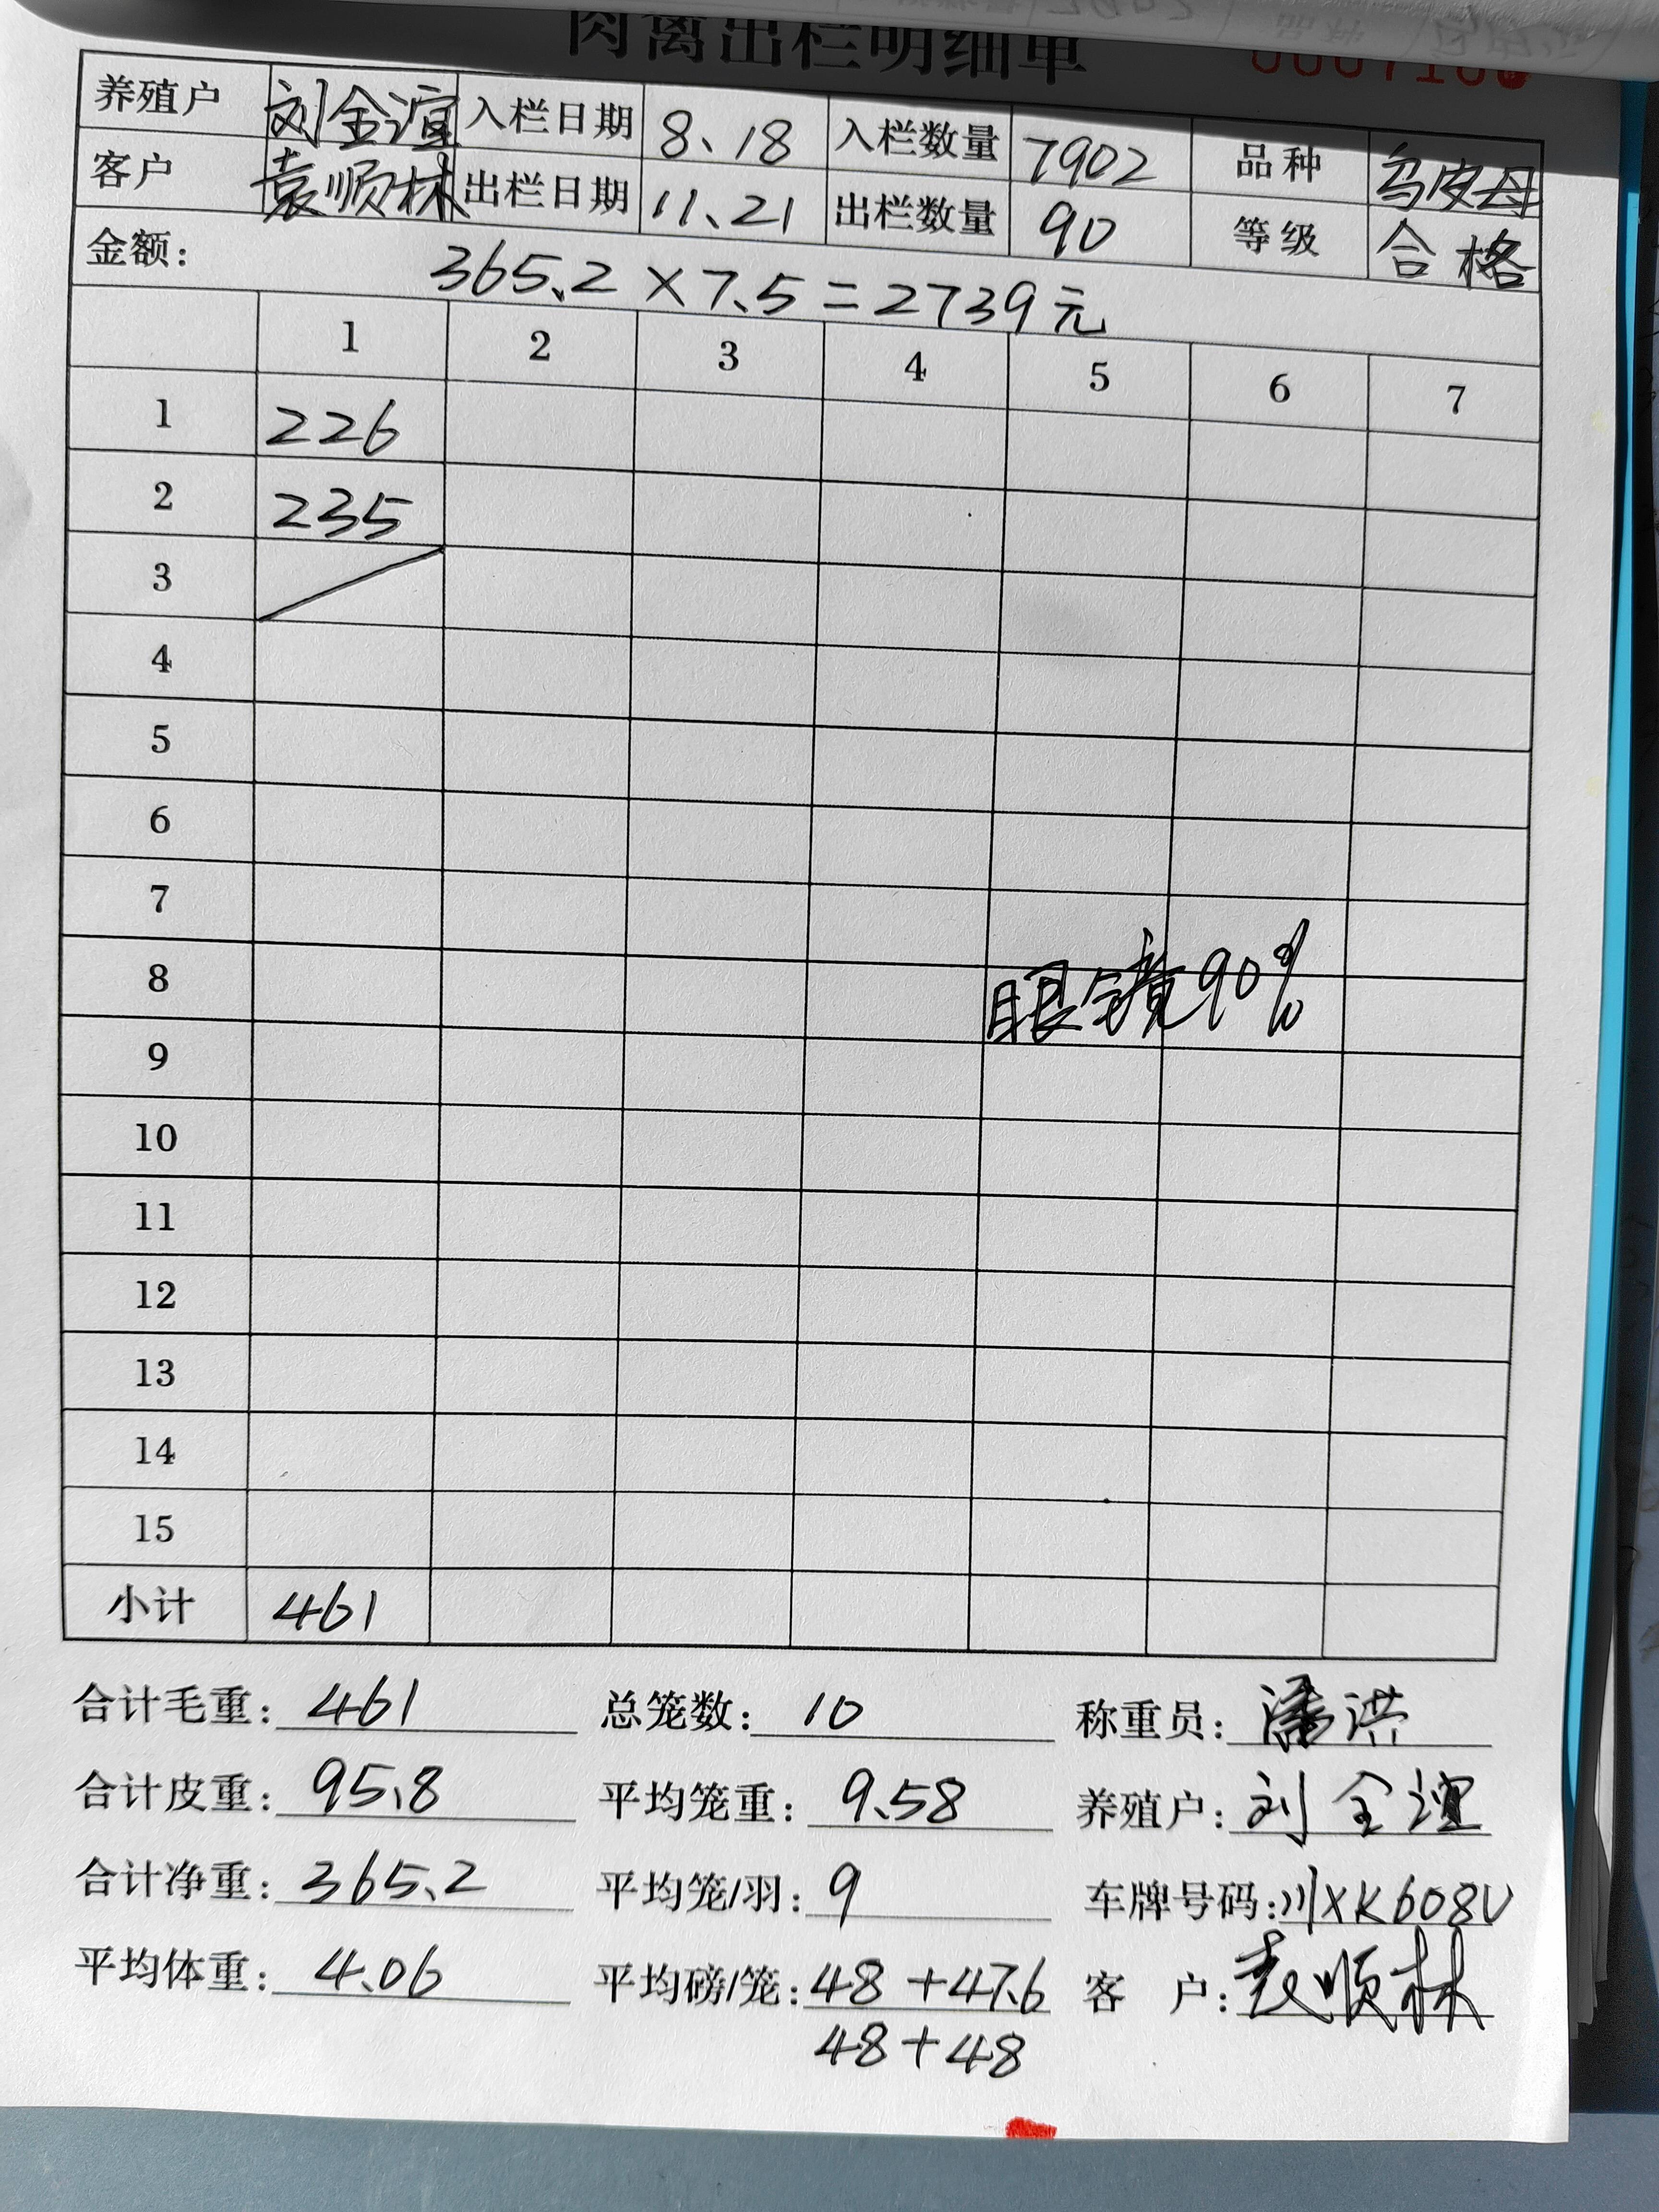 肉禽出栏明细单
养殖户 刘金谊 入栏日期 8、18 入栏数量 7902 品种 乌皮母
客户 袁顺林 出栏日期 11、21 出栏数量 90 等级 合格
金额: 365.2×7.5=2739元
1 2 3 4 5 6 7
1 226
2 235
3
4
5
6
7
8 眼镜90%
9
10
11
12
13
14
15
小计 461
合计毛重: 461 总笼数: 10 称重员: 潘洪
合计皮重: 95.8 平均笼重: 9.58 养殖户: 刘金谊
合计净重: 365.2 平均笼/羽: 9 车牌号码: 川XK608U
平均体重: 4.06 平均磅/笼: 48+47.6 客 户: 袁顺林
48+48